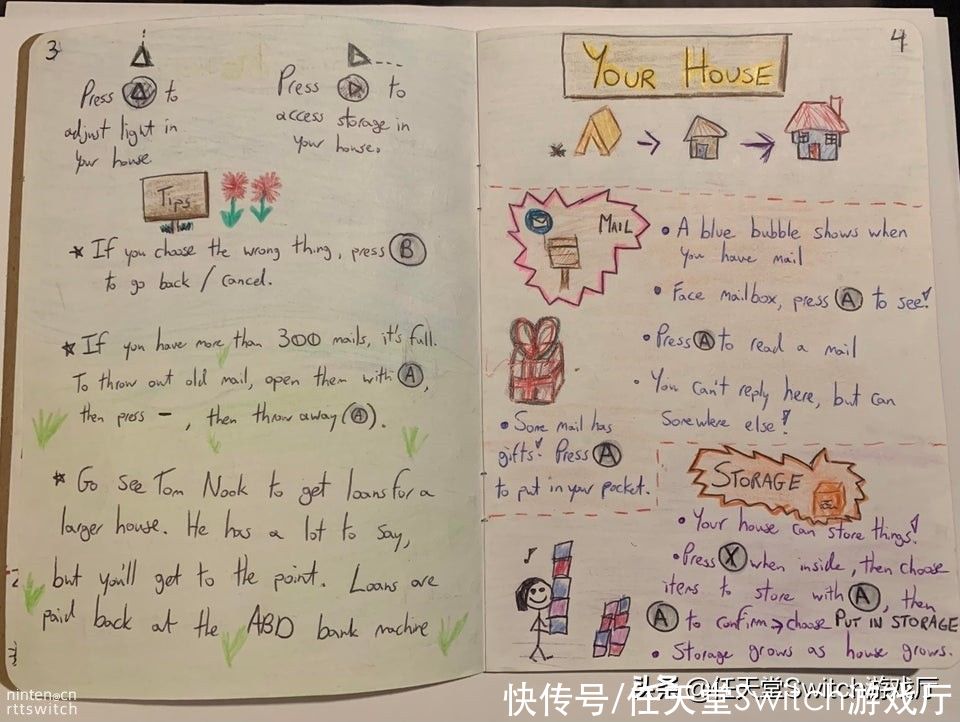 3
Press △ to
adjust light in
your house
Press ▷ to
access storage in
your house.
Tips
* If you choose the wrong thing, press B
to go back / cancel.
* If you have more than 300 mails, it's full.
To throw out old mail, open them with A,
then press - , then throw away (A).
* Go see Tom Nook to get loans for a
larger house. He has a lot to say,
but you'll get to the point. Loans are
paid back at the ABD bank machine
4
YOUR HOUSE
MAIL
• A blue bubble shows when
you have mail
• Face mailbox, press A to see!
• Press A to read a mail
• You can't reply here, but can
somewere else!
• Some mail has
gifts! Press A
to put in your pocket.
STORAGE
• Your house can store things!
• Press X when inside, then choose
items to store with A, then
A to confirm → choose PUT IN STORAGE
• Storage grows as house grows.
ninten.cn
rttswitch
头条 @任天堂Switch游戏厅
快传号/任天堂Switch游戏厅